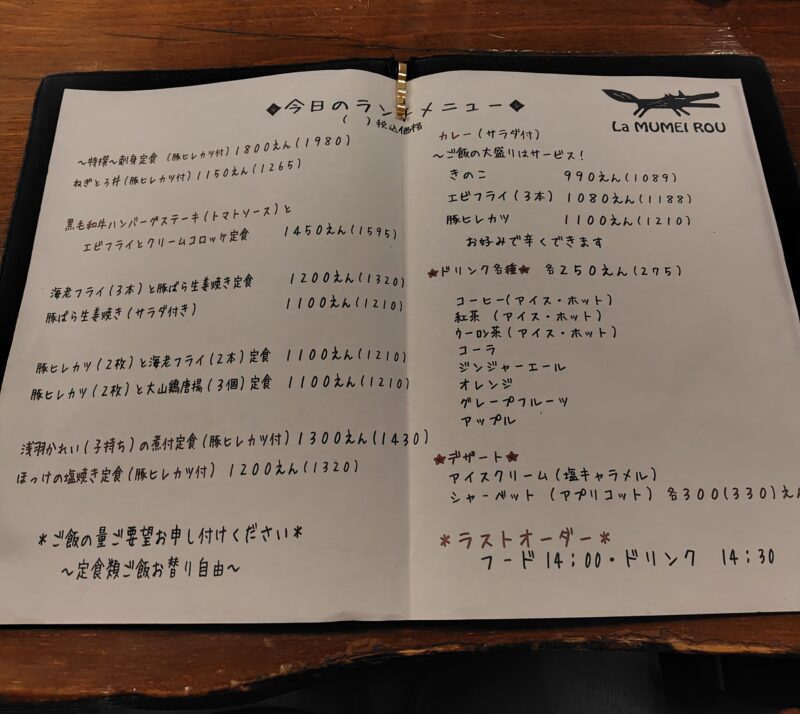 ◆今日のランチメニュー◆
( )税込価格
～特撰～刺身定食 (豚ヒレカツ付) 1800えん(1980)
ねぎとろ丼(豚ヒレカツ付) 1150えん(1265)
黒毛和牛ハンバーグステーキ(トマトソース)と
エビフライとクリームコロッケ定食 1450えん(1595)
海老フライ(3本)と豚ばら生姜焼き定食 1200えん(1320)
豚ばら生姜焼き(サラダ付き) 1100えん(1210)
豚ヒレカツ(2枚)と海老フライ(2本)定食 1100えん(1210)
豚ヒレカツ(2枚)と大山鶏唐揚(3個)定食 1100えん(1210)
浅羽かれい(子持ち)の煮付定食(豚ヒレカツ付) 1300えん(1430)
ほっけの塩焼き定食(豚ヒレカツ付) 1200えん(1320)
*ご飯の量ご要望お申し付けください*
～定食類ご飯お替り自由～
La MUMEI ROU
カレー(サラダ付)
～ご飯の大盛りはサービス!
きのこ 990えん(1089)
エビフライ(3本) 1080えん(1188)
豚ヒレカツ 1100えん(1210)
お好みで辛くできます
★ドリンク各種★ 各250えん(275)
コーヒー(アイス・ホット)
紅茶 (アイス・ホット)
ウーロン茶(アイス・ホット)
コーラ
ジンジャーエール
オレンジ
グレープフルーツ
アップル
★デザート★
アイスクリーム(塩キャラメル)
シャーベット (アプリコット) 各300(330)えん
*ラストオーダー*
フード14:00・ドリンク 14:30